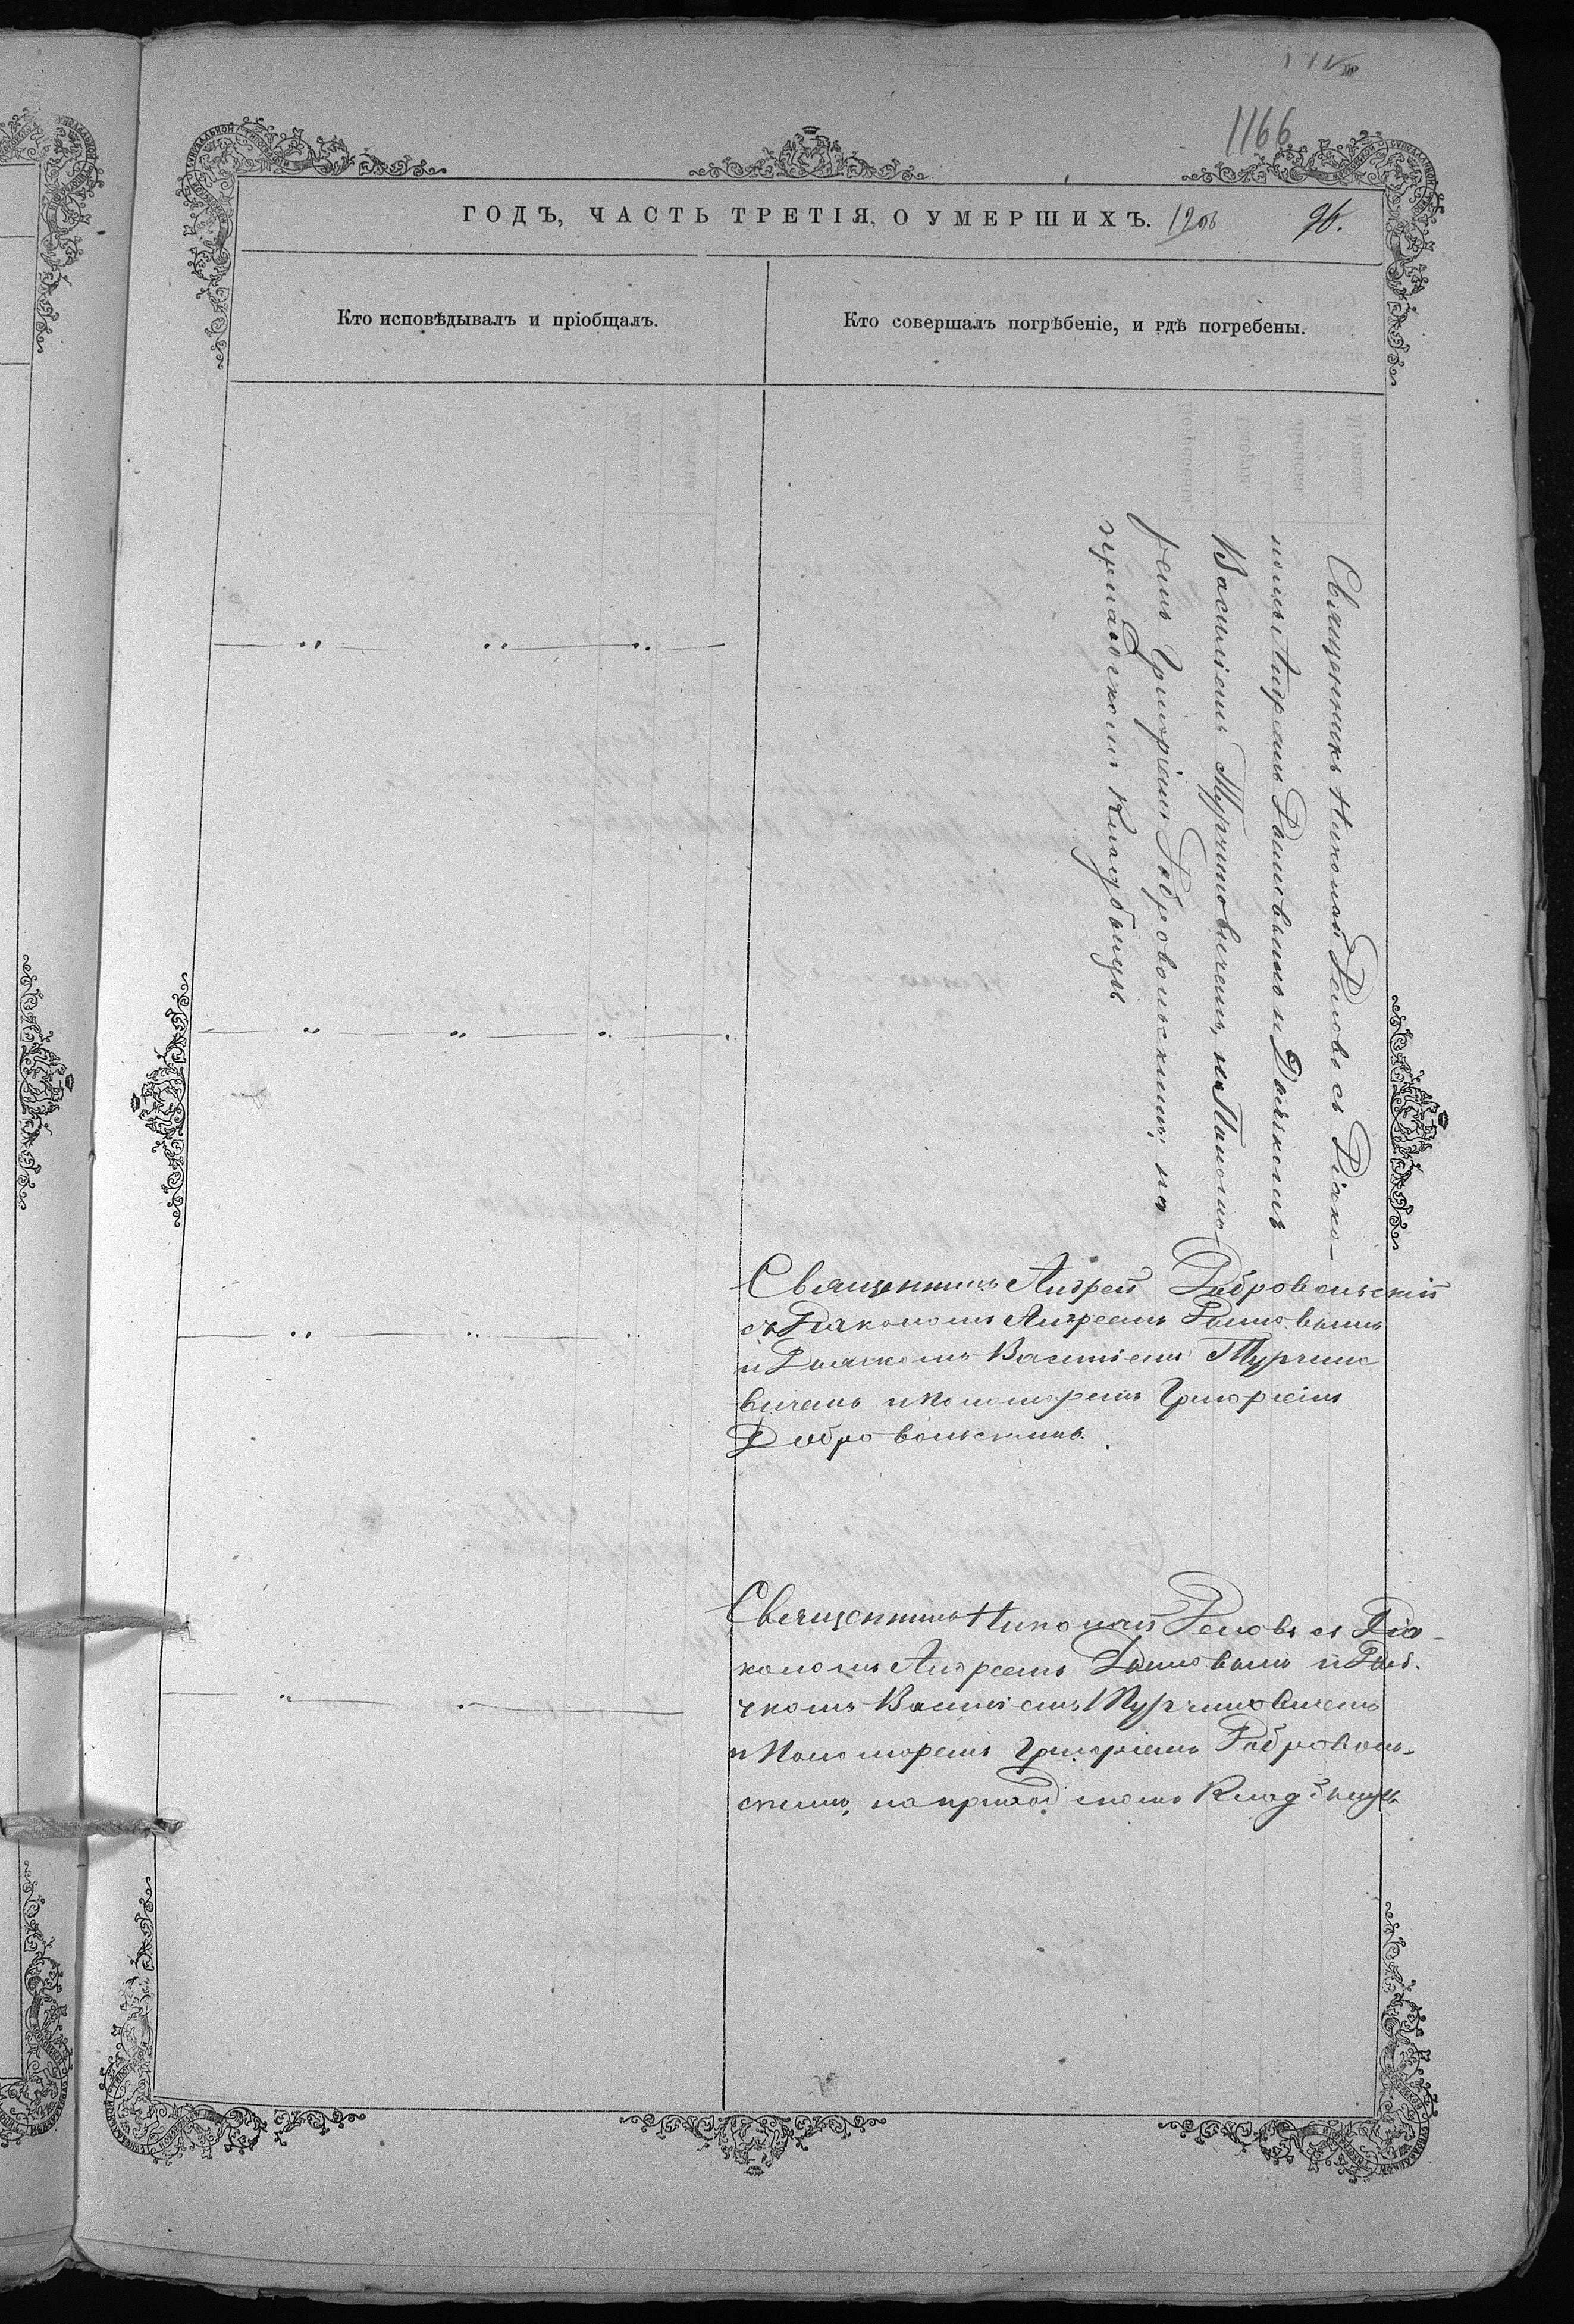 1166
ГОДЪ, ЧАСТЬ ТРЕТІЯ, О УМЕРШИХЪ.
Кто исповѣдывалъ и пріобщалъ.
Кто совершалъ погрѣбеніе, и гдѣ погребены.
Священникъ Николай с Діако-
номъ Андреемъ и Дьячкомъ
Василіемъ Турчиновичемъ, и Пономо-
ремъ Григоріемъ Добровольскимъ; на
приходскомъ Кладбищѣ
Священникъ Андрей Добровольскій
съ Діакономъ Андреемъ
и Дьячкомъ Василіемъ Турчино
вичемъ и Пономоремъ Григоріемъ
Добровольскимъ.
Священникъ Николай съ Діа-
кономъ Андреемъ и Дья-
чкомъ Василіемъ Турчиновичемъ
и Пономоремъ Григоріемъ Доброволь-
скимъ, на приходскомъ Кладбищѣ